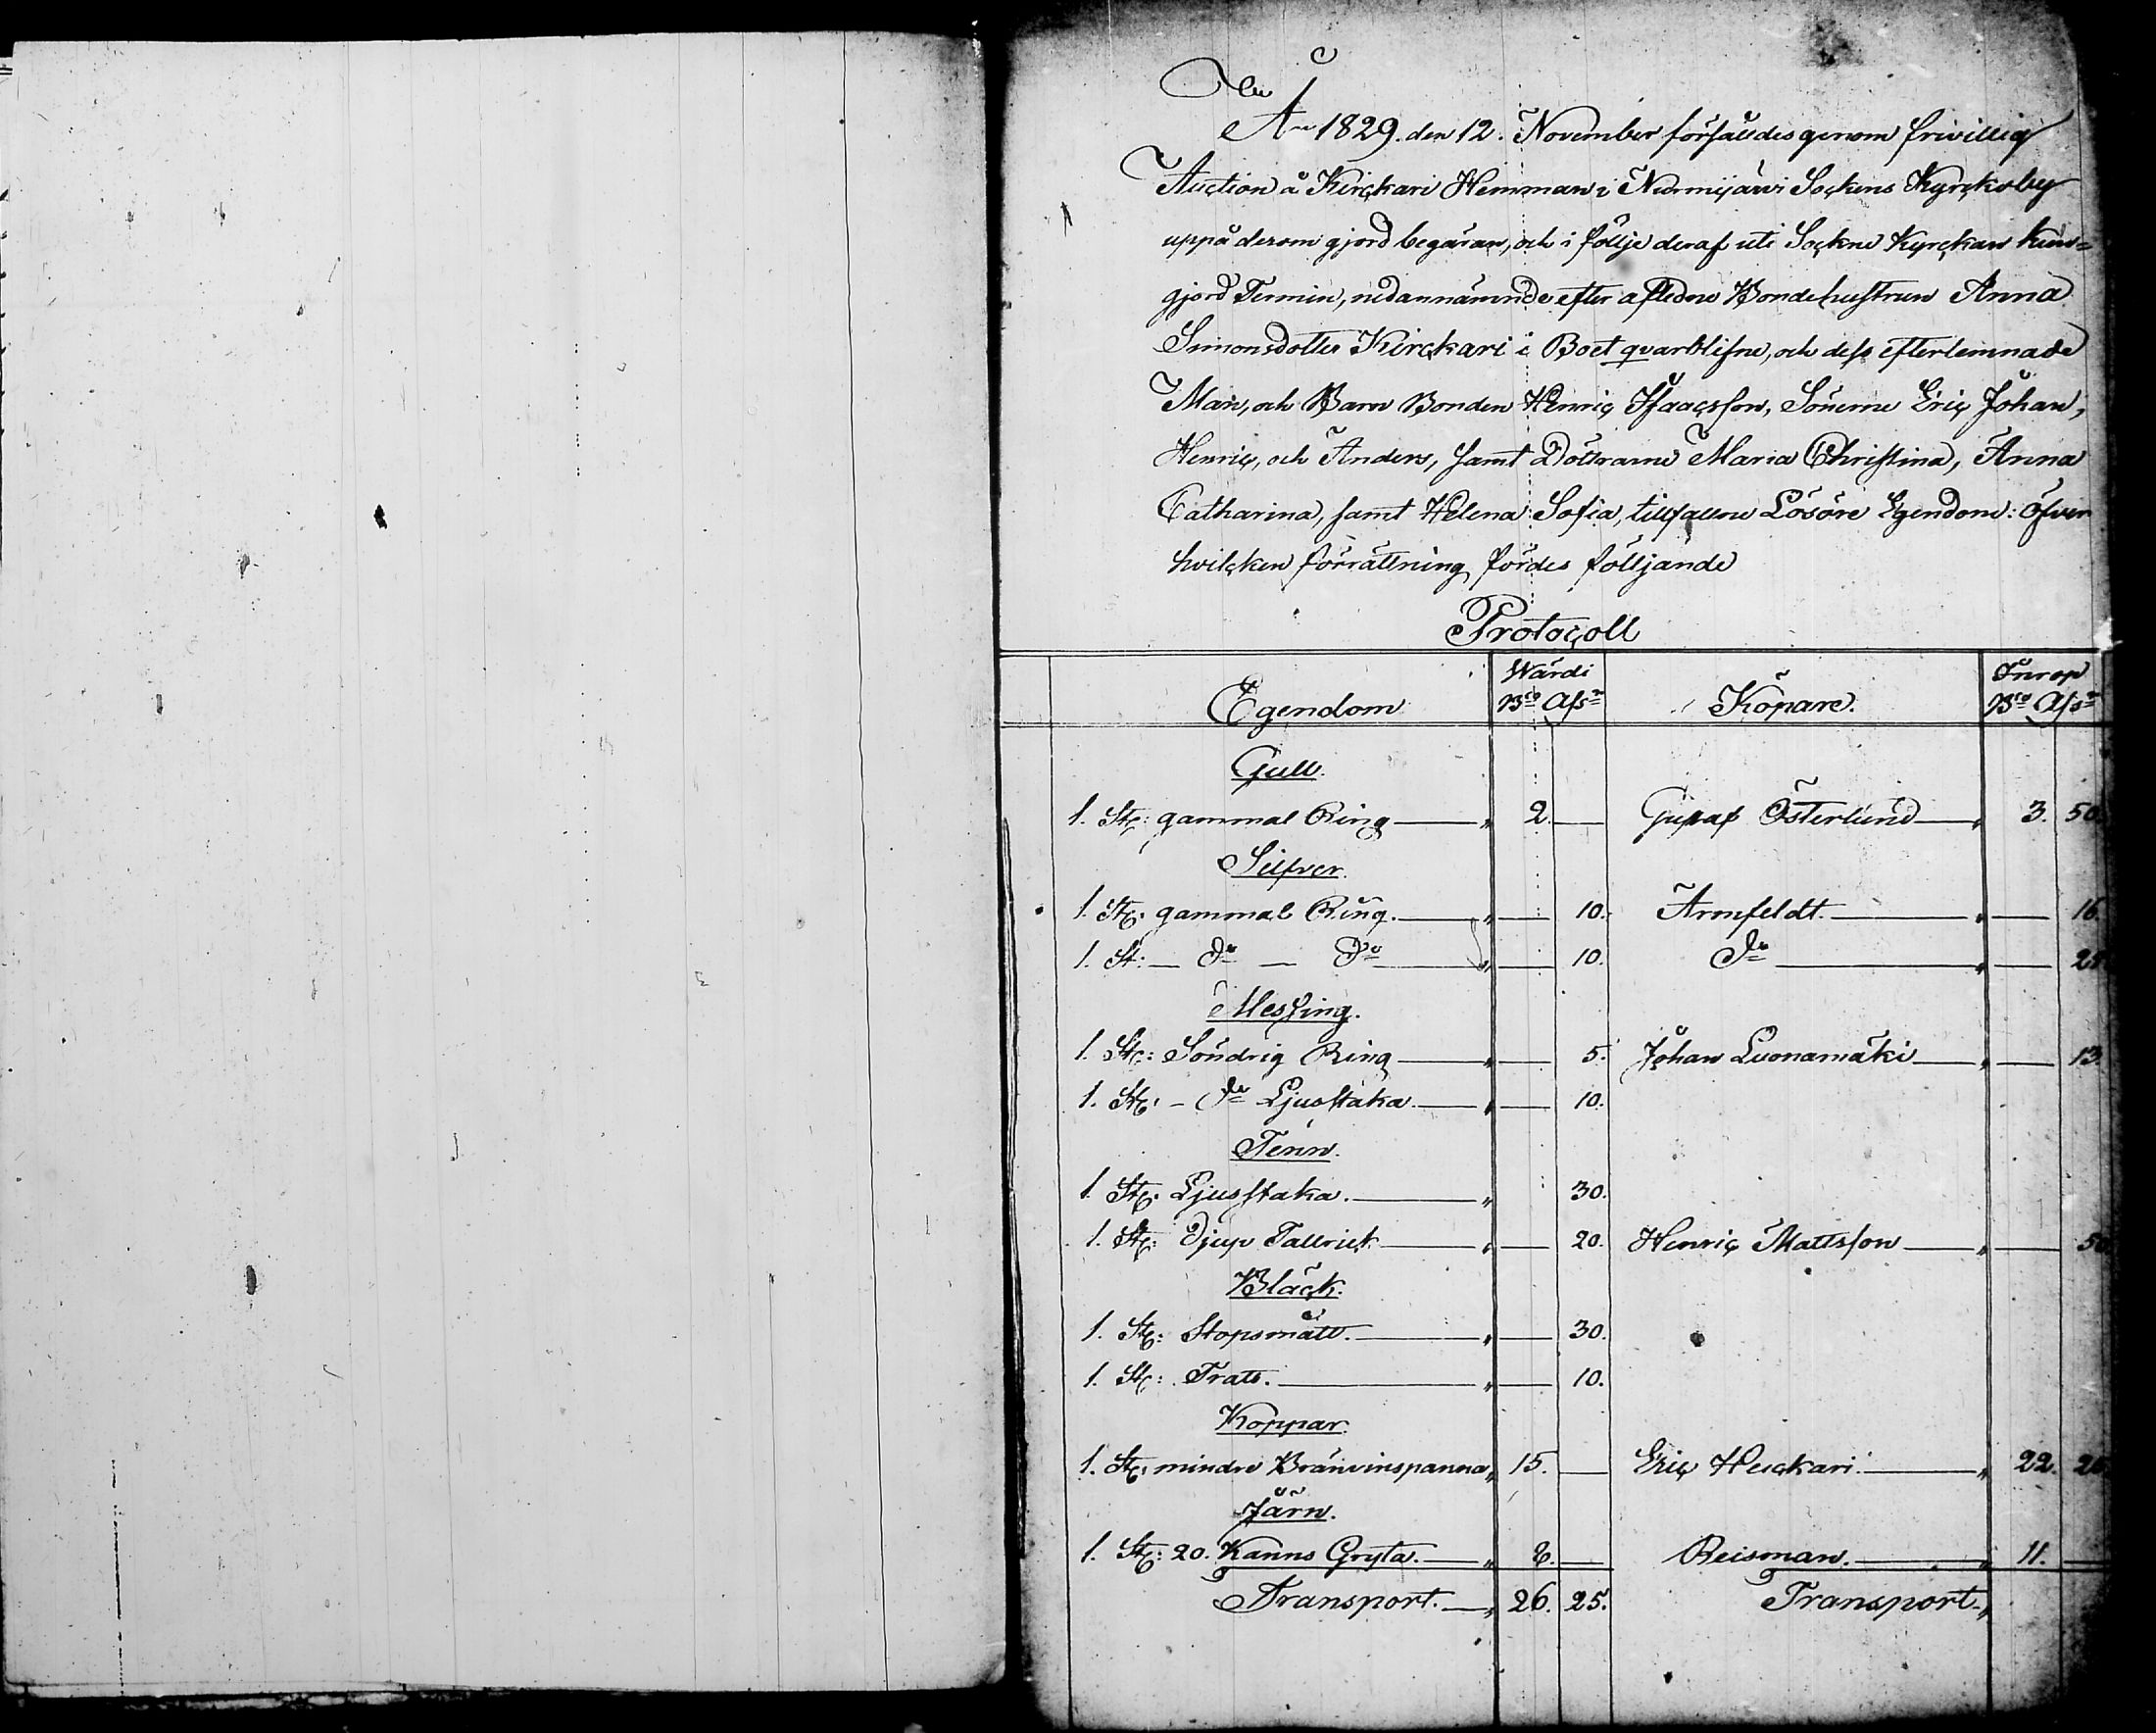 År 1829. den 12. November försåldes genom frivillig
Auction å Kirckari Hemman i Nurmijärvi Sockens Kyrckoby
uppå derom gjord begäran, och i föllje deraf uti Sockne Kyrckan kun=
gjord Termin, nedannämnde efter aflidne Bondehustrun Anna
Simonsdotter Kirckari i Boet qvarblifne, och dess efterlemnade
Man, och Barn Bonden Henric Isaacsson, Sönerne Eric Johan,
Henric, och Anders, samt Döttrarne Maria Christina, Anna
Catharina, samt Helena Sofia, tillfallne Lösöre Egendom: öfver
hvilcken förrättning fördes följande
Protocoll
Egendom Wärdi Bco Assn Köpare. Inrop Bco Assn
Gull.
1. St: gammal Ring — " 2. — Gustaf Österlund — " 3. 50.
Silfver.
1. St: gammal Ring. — " — 10. Armfeldt. — " — 16.
1. St: — Do — Do — " — 10. Do — " —
Messing.
1. St: Söndrig Ring — " — 5. Johan Luonamäki — " — 13.
1. St: — Do Ljusstaka. — " — 10.
Tenn.
1. St: Ljusstaka. — " 30.
1. St: Djup Tallrick — " — 20. Henric Mattsson — " — 50
Bläck.
1. St: Stopsmått. — " — 30.
1. St: Tratt. — " — 10.
Koppar.
1. St: mindre Bränvinspanna " 15. — Eric — " 22.
Järn.
1. St: 20. Kanns Gryta. — " 8. — Reisman. — " 11. —
Transport. — " 26. 25. Transport. "